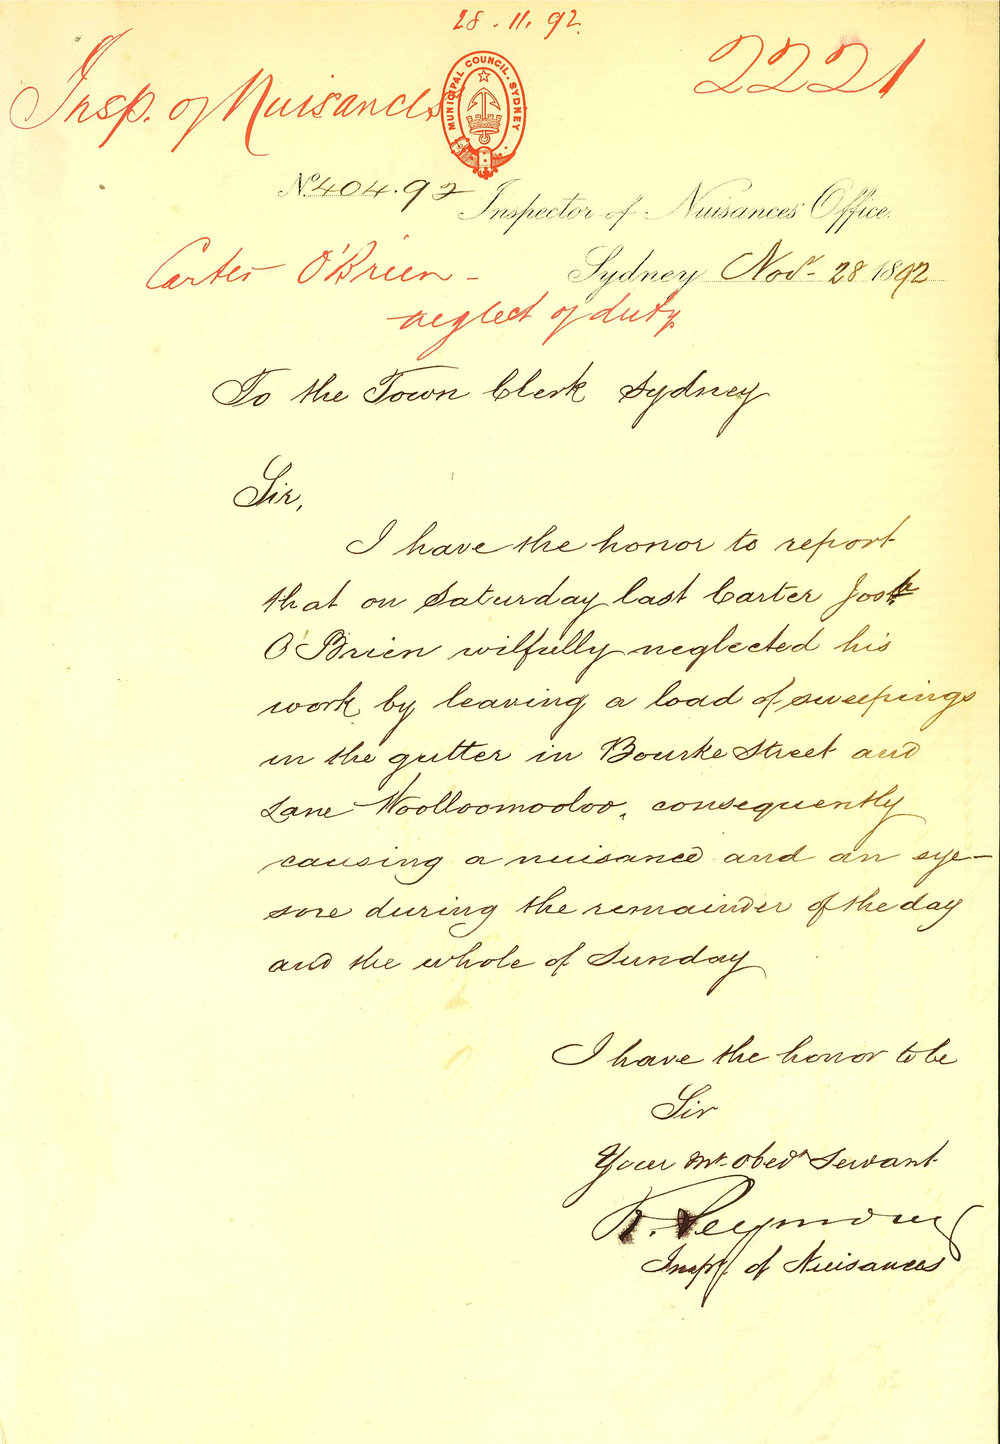 28.11.92.
2221
Insp. of Nuisances
MUNICIPAL COUNCIL. SYDNEY
No 404.92
Inspector of Nuisances Office.
Carter O'Brien -
Sydney Novr 28 1892
neglect of duty.
To the Town Clerk Sydney
Sir,
I have the honor to report
that on Saturday last Carter Josh
O'Brien wilfully neglected his
work by leaving a load of sweepings
in the gutter in Bourke Street and
Lane Woolloomooloo, consequently
causing a nuisance and an eye-
sore during the remainder of the day
and the whole of Sunday
I have the honor to be
Sir
Your Mt. Obedt Servant
R. Seymour
Inspr. of Nuisances